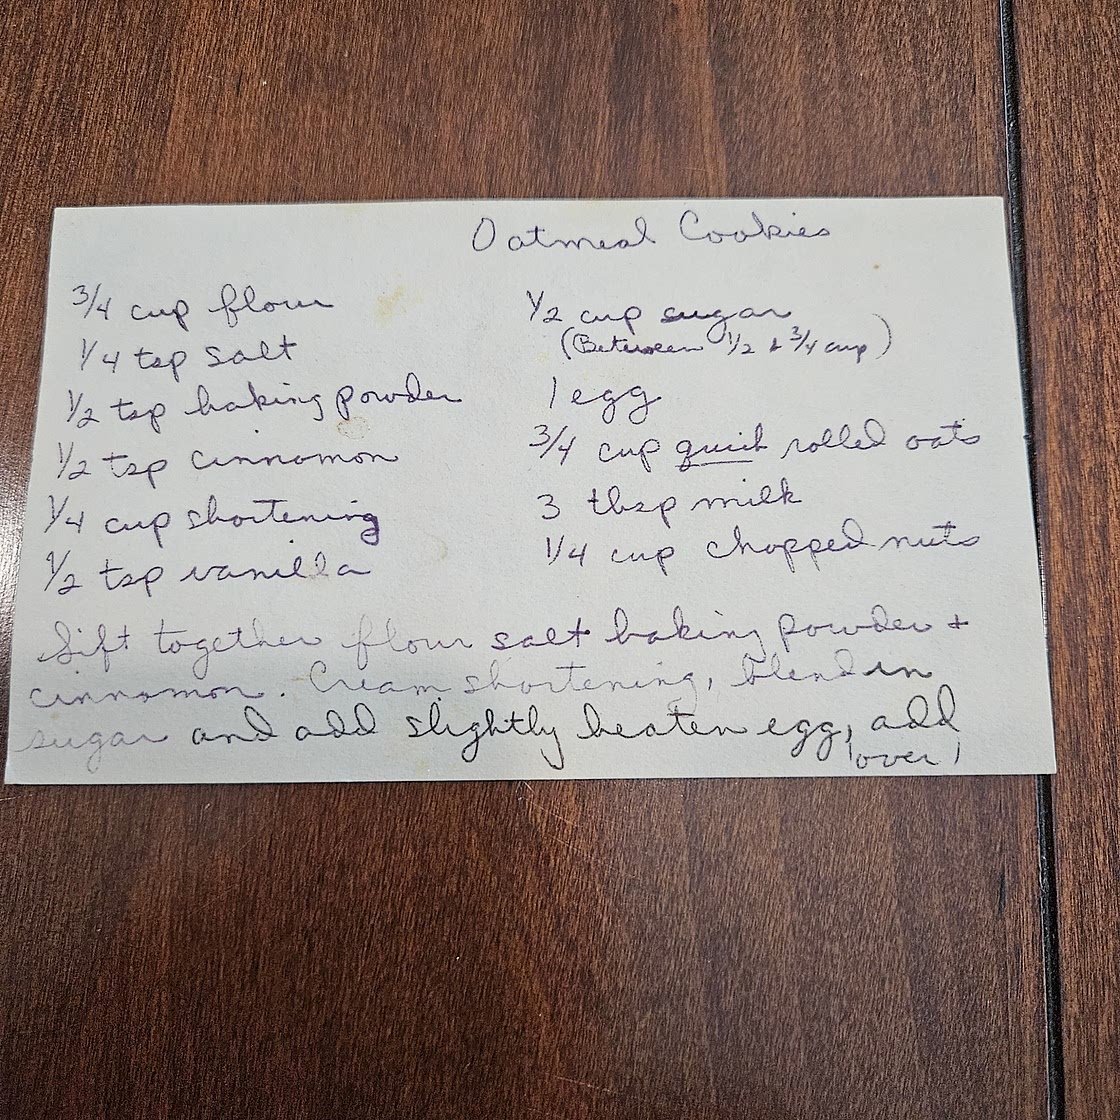 Oatmeal Cookies
3/4 cup flour
1/4 tsp salt
1/2 tsp baking powder
1/2 tsp cinnamon
1/4 cup shortening
1/2 tsp vanilla
1/2 cup sugar
(Between 1/2 & 3/4 cup)
1 egg
3/4 cup quick rolled oats
3 tbsp milk
1/4 cup chopped nuts
Sift together flour salt baking powder +
cinnamon. Cream shortening, blend in
sugar and add slightly beaten egg, add
(over)